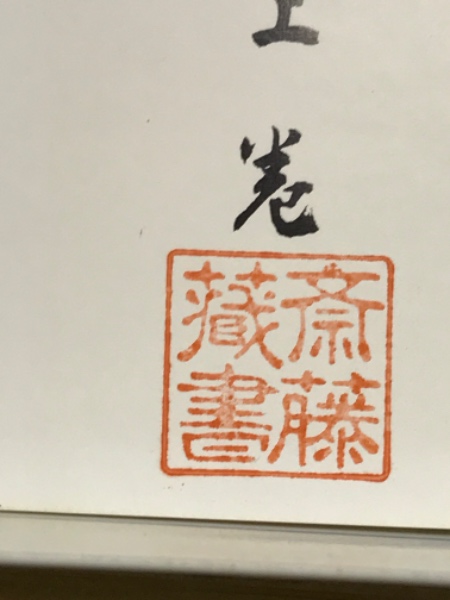 上巻
斎藤
蔵書